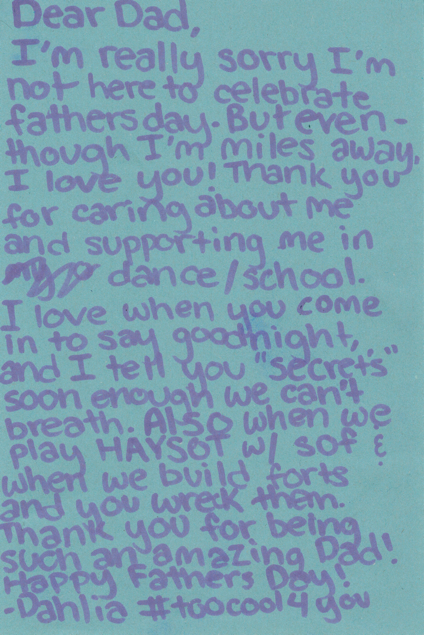 Dear Dad,
I'm really sorry I'm
not here to celebrate
fathers day. But even-
though I'm miles away,
I love you! Thank you
for caring about me
and supporting me in
dance/school.
I love when you come
in to say goodnight,
and I tell you "secrets"
soon enough we can't
breath. Also when we
play HAYSOT w/ sof &
when we build forts
and you wreck them.
Thank you for being
such an amazing Dad!
Happy Fathers Day!
-Dahlia #toocool4you